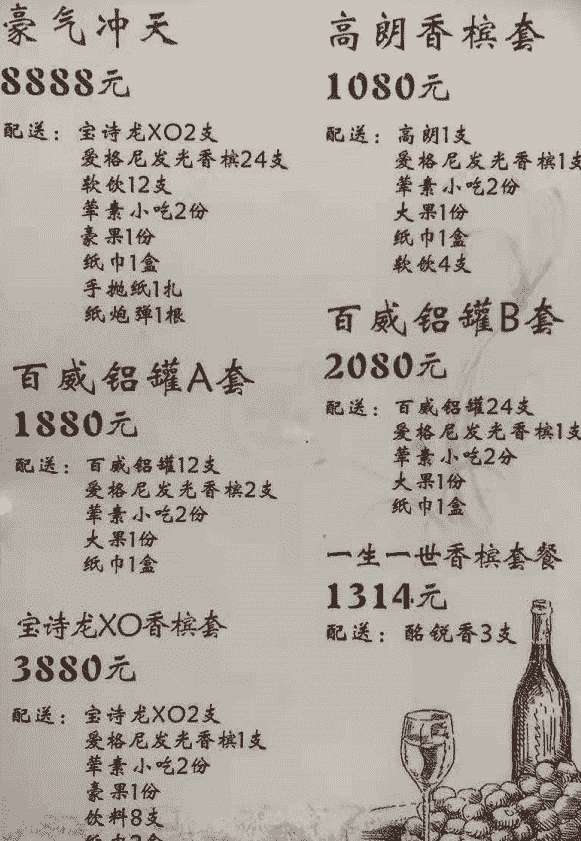 豪气冲天
8888元
配送：宝诗龙XO2支
爱格尼发光香槟24支
软饮12支
荤素小吃2份
豪果1份
纸巾1盒
手抛纸1扎
纸炮弹1根
百威铝罐A套
1880元
配送：百威铝罐12支
爱格尼发光香槟2支
荤素小吃2份
大果1份
纸巾1盒
宝诗龙XO香槟套
3880元
配送：宝诗龙XO2支
爱格尼发光香槟1支
荤素小吃2份
豪果1份
饮料8支
高朗香槟套
1080元
配送：高朗1支
爱格尼发光香槟1支
荤素小吃2份
大果1份
纸巾1盒
软饮4支
百威铝罐B套
2080元
配送：百威铝罐24支
爱格尼发光香槟1支
荤素小吃2分
大果1份
纸巾1盒
一生一世香槟套餐
1314元
配送：酩锐香3支